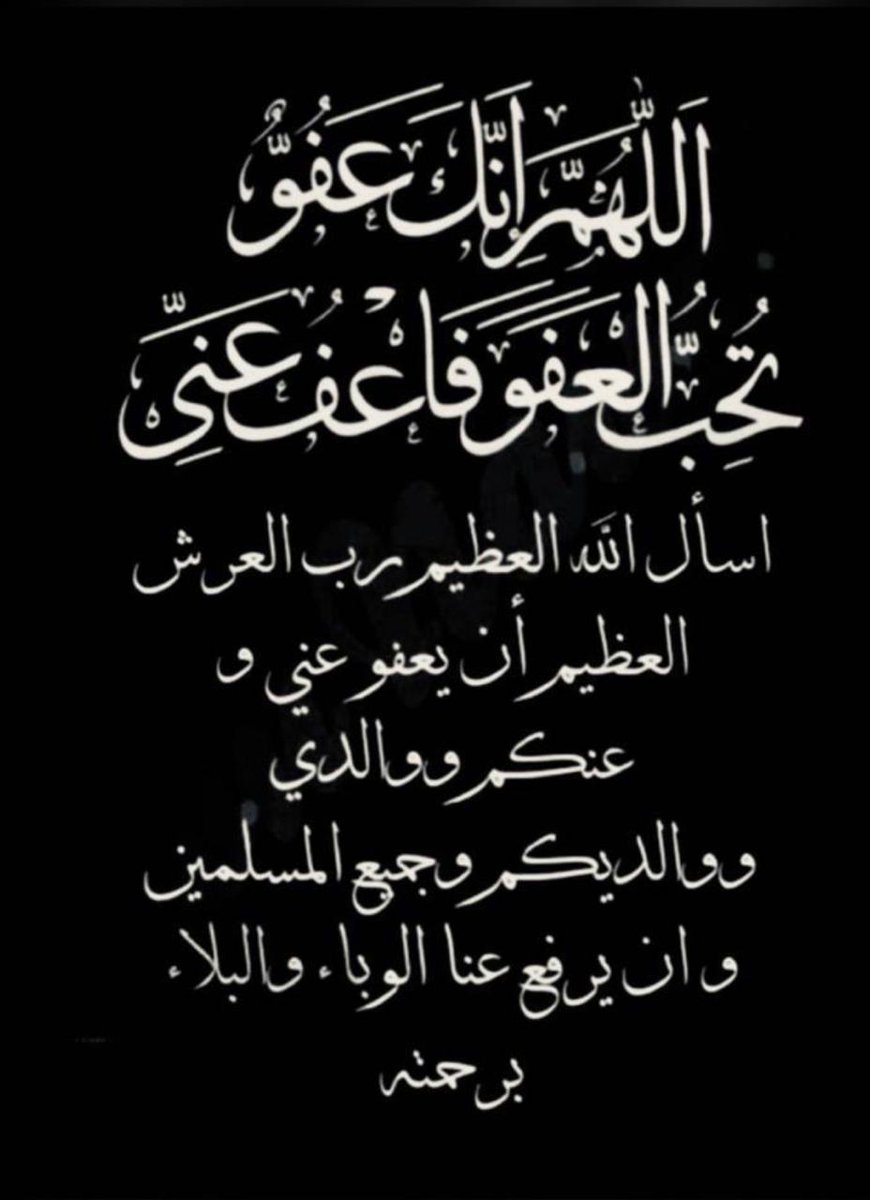 اَللّٰهُمَّ إِنَّكَ عَفُوٌّ
تُحِبُّ الْعَفْوَ فَاعْفُ عَنِّي
اسأل الله العظيم رب العرش
العظيم أن يعفو عني و
عنكم ووالدي
ووالديكم وجميع المسلمين
و ان يرفع عنا الوباء والبلاء
برحمته